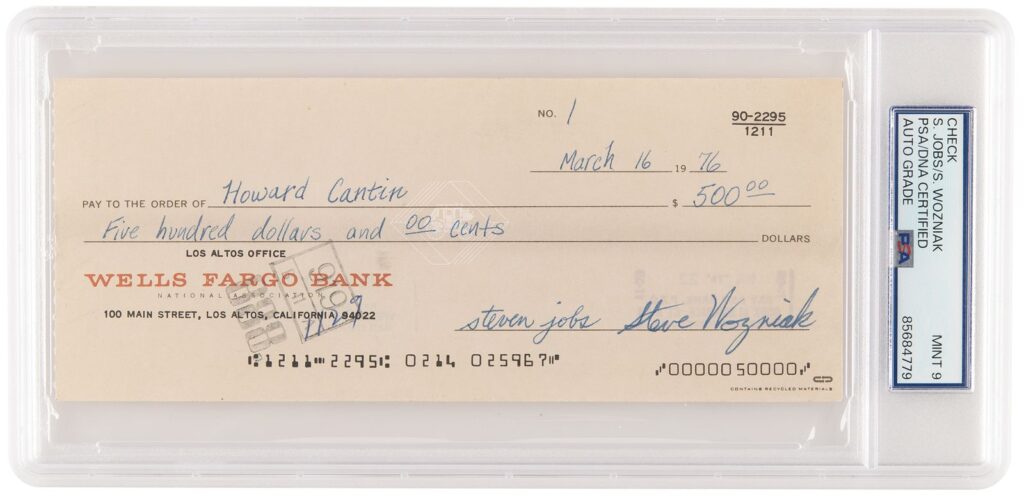 NO. 1
90-2295
1211
March 16 1976
PAY TO THE ORDER OF Howard Cantin $ 500 00
Five hundred dollars and 00 cents DOLLARS
LOS ALTOS OFFICE
WELLS FARGO BANK
NATIONAL ASSOCIATION
100 MAIN STREET, LOS ALTOS, CALIFORNIA 94022
steven jobs Steve Wozniak
⑆1211⑉2295⑆ 0214 025967⑈ ⑇0000050000⑇
CONTAINS RECYCLED MATERIALS
CHECK
S. JOBS/S. WOZNIAK
PSA/DNA CERTIFIED
AUTO GRADE MINT 9
PSA 85684779